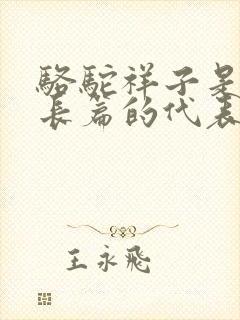 骆駝祥子是
长篇的代表
王永飛